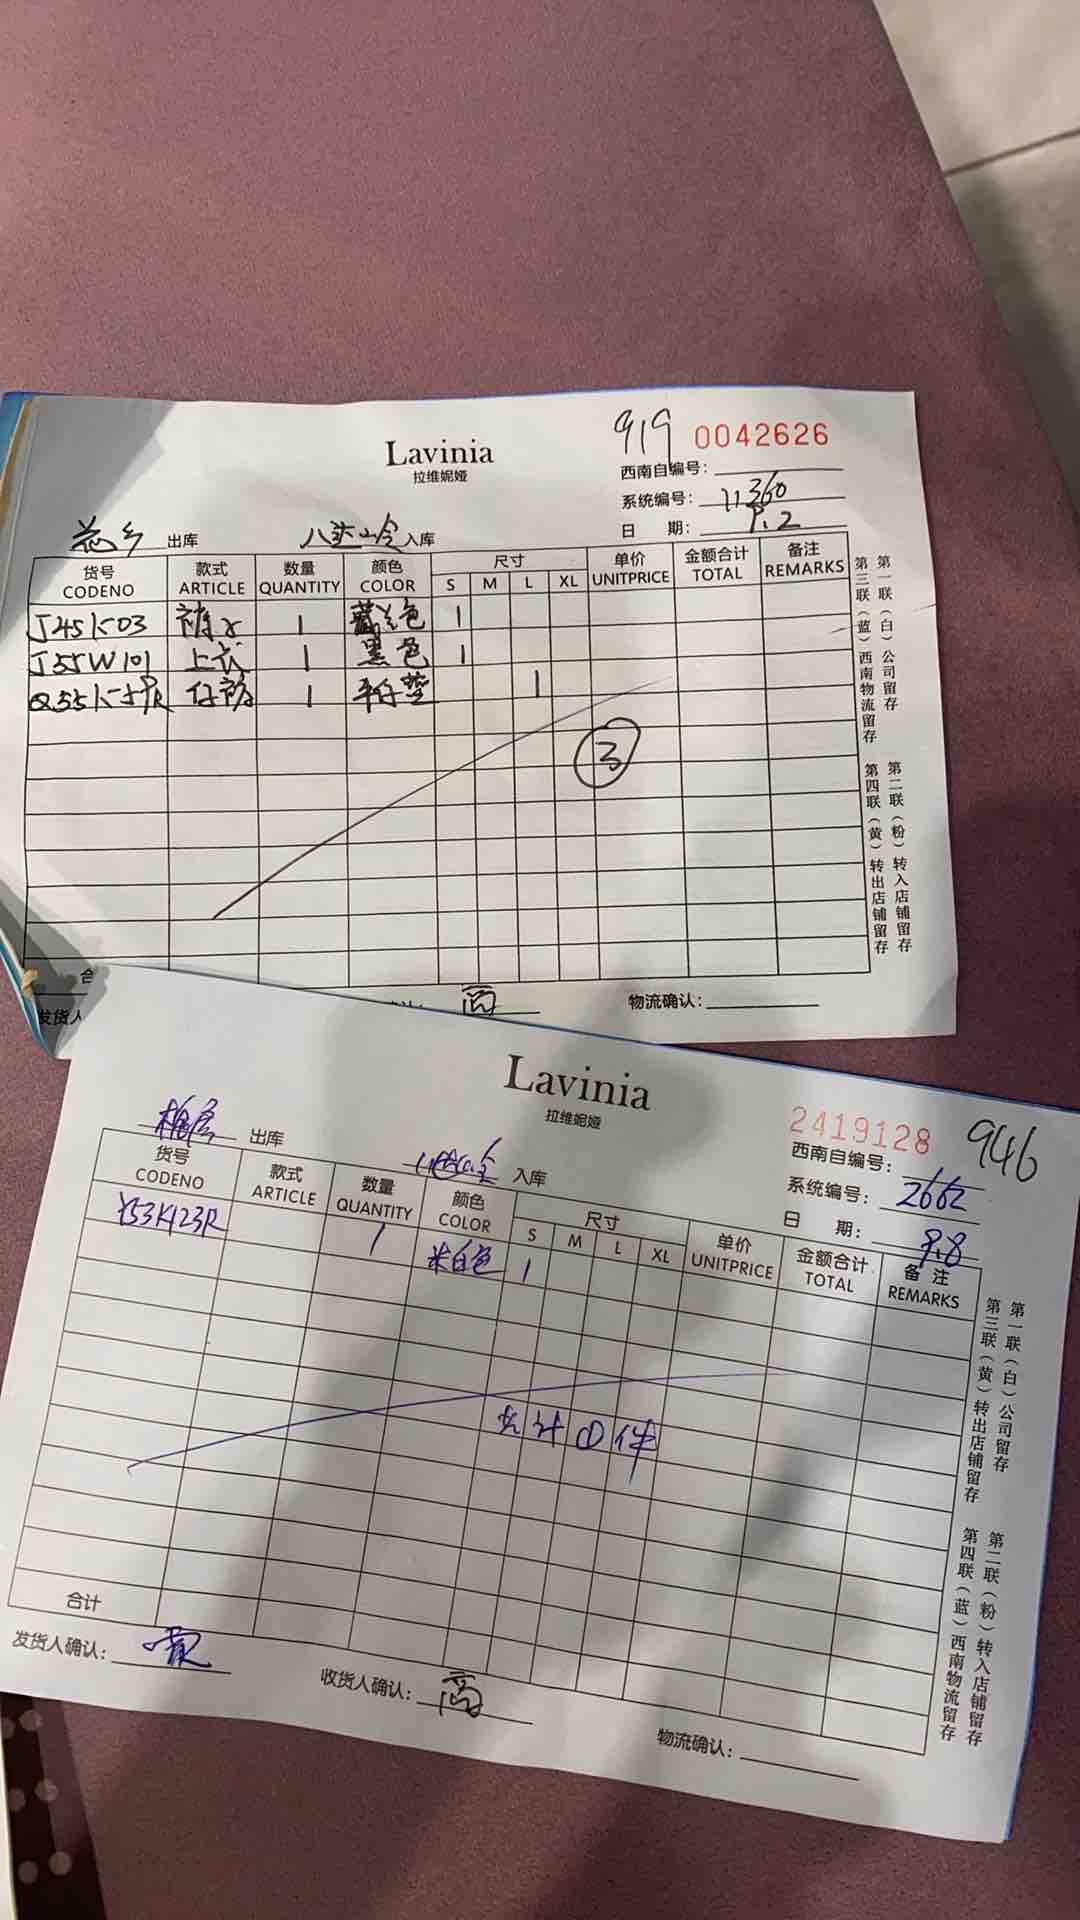 919 0042626
Lavinia
拉维妮娅
西南自编号:
系统编号: 11360
日 期: 9.2
花乡 出库 八达岭 入库
货号 款式 数量 颜色 尺寸 单价 金额合计 备注
CODENO ARTICLE QUANTITY COLOR S M L XL UNITPRICE TOTAL REMARKS
J45K03 裤子 1 藏兰色 1
J55W101 上衣 1 黑色 1
仔裤 1 1
3
第一联(白)公司留存 第二联(粉)转入店铺留存
第三联(蓝)西南物流留存 第四联(黄)转出店铺留存
合
发货人 高 物流确认:
Lavinia
拉维妮娅
2419128 946
西南自编号:
系统编号: 2662
日 期: 9.8
出库 入库
货号 款式 数量 颜色 尺寸 单价 金额合计 备注
CODENO ARTICLE QUANTITY COLOR S M L XL UNITPRICE TOTAL REMARKS
Y53K123R 1 米白色 1
共计①件
第一联(白)公司留存 第二联(粉)转入店铺留存
第三联(黄)转出店铺留存 第四联(蓝)西南物流留存
合计
发货人确认: 收货人确认: 高 物流确认: